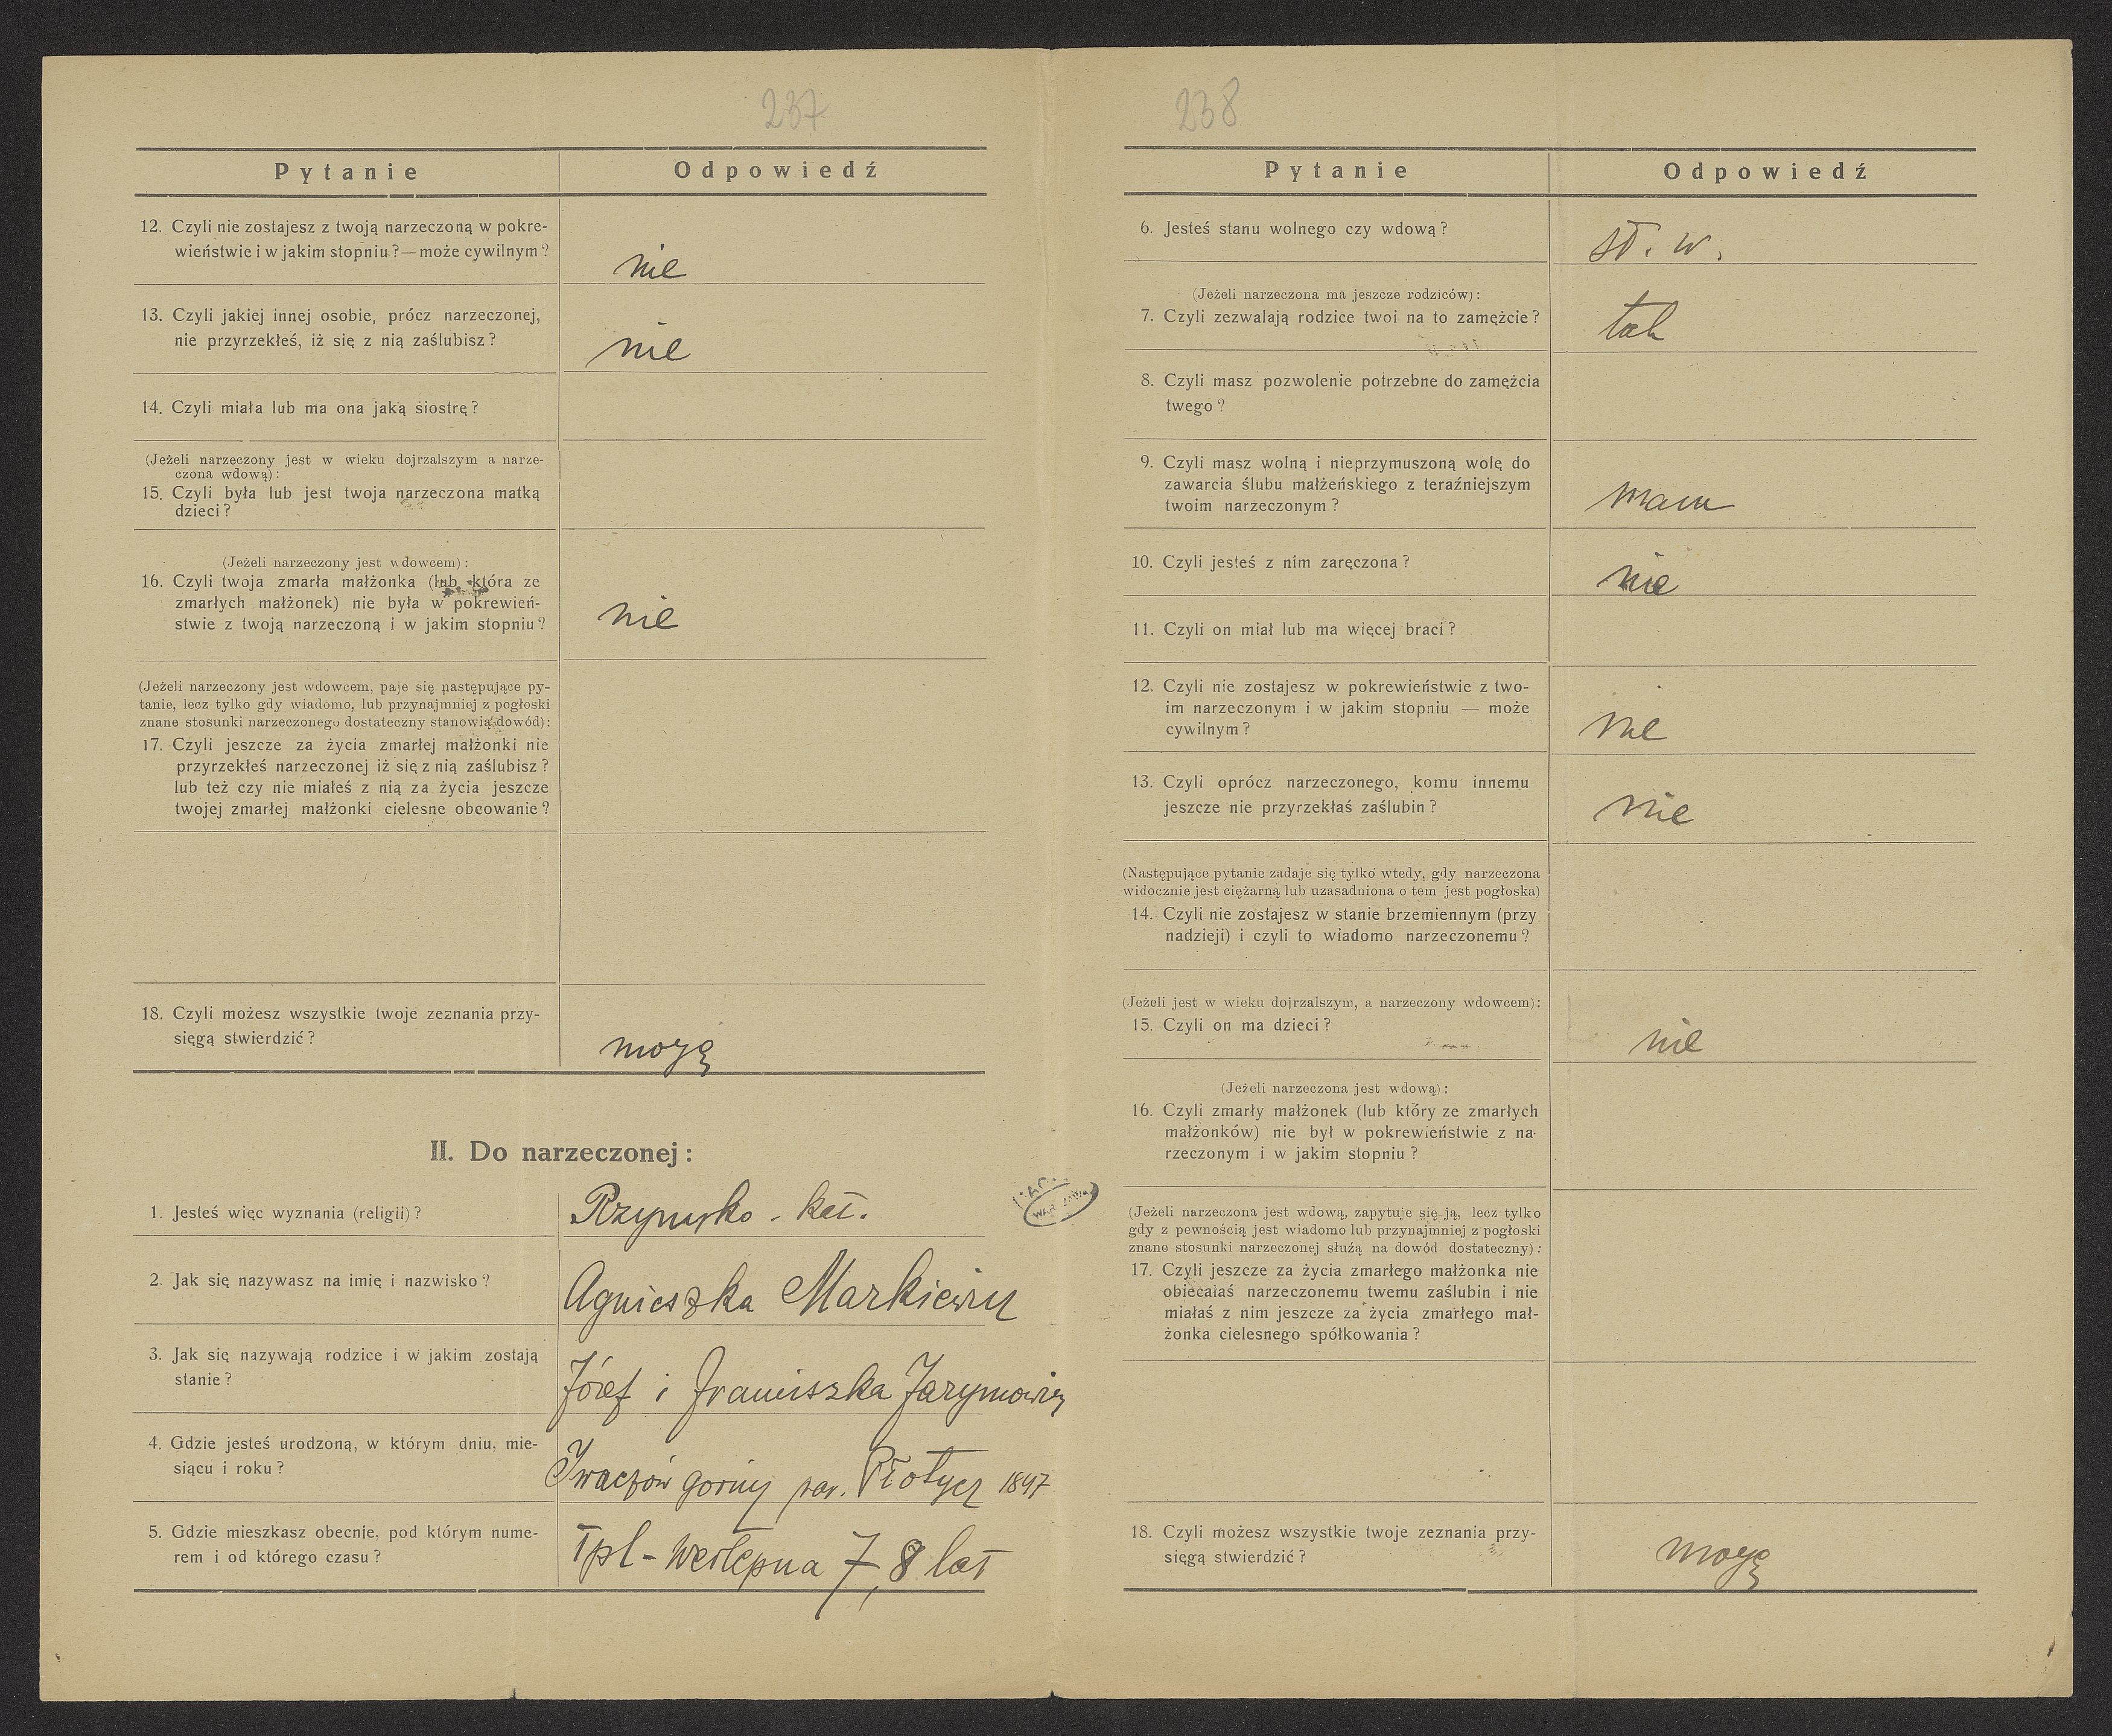 237
Pytanie Odpowiedź
12. Czyli nie zostajesz z twoją narzeczoną w pokre-
wieństwie i w jakim stopniu?—może cywilnym?
nie
13. Czyli jakiej innej osobie, prócz narzeczonej,
nie przyrzekłeś, iż się z nią zaślubisz?
nie
14. Czyli miała lub ma ona jaką siostrę?
(Jeżeli narzeczony jest w wieku dojrzalszym a narze-
czona wdową):
15. Czyli była lub jest twoja narzeczona matką
dzieci?
(Jeżeli narzeczony jest wdowcem):
16. Czyli twoja zmarła małżonka (lub która ze
zmarłych małżonek) nie była w pokrewień-
stwie z twoją narzeczoną i w jakim stopniu?
nie
(Jeżeli narzeczony jest wdowcem, paje się następujące py-
tanie, lecz tylko gdy wiadomo, lub przynajmniej z pogłoski
znane stosunki narzeczonego dostateczny stanowią dowód):
17. Czyli jeszcze za życia zmarłej małżonki nie
przyrzekłeś narzeczonej iż się z nią zaślubisz?
lub też czy nie miałeś z nią za życia jeszcze
twojej zmarłej małżonki cielesne obcowanie?
18. Czyli możesz wszystkie twoje zeznania przy-
sięgą stwierdzić?
mogę
II. Do narzeczonej:
1. Jesteś więc wyznania (religii)?
Rzymsko-kat.
2. Jak się nazywasz na imię i nazwisko?
Agnieszka Markiewicz
3. Jak się nazywają rodzice i w jakim zostają
stanie?
Józef i Franciszka Jarymowicz
4. Gdzie jesteś urodzoną, w którym dniu, mie-
siącu i roku?
Iwaczów gorny par. Płotycz 1897
5. Gdzie mieszkasz obecnie, pod którym nume-
rem i od którego czasu?
Tpl- 7, 8 lat
238
Pytanie Odpowiedź
6. Jesteś stanu wolnego czy wdową?
st. w.
(Jeżeli narzeczona ma jeszcze rodziców):
7. Czyli zezwalają rodzice twoi na to zamężcie?
tak
8. Czyli masz pozwolenie potrzebne do zamężcia
twego?
9. Czyli masz wolną i nieprzymuszoną wolę do
zawarcia ślubu małżeńskiego z teraźniejszym
twoim narzeczonym?
mam
10. Czyli jesteś z nim zaręczona?
nie
11. Czyli on miał lub ma więcej braci?
12. Czyli nie zostajesz w pokrewieństwie z two-
im narzeczonym i w jakim stopniu — może
cywilnym?
nie
13. Czyli oprócz narzeczonego, komu innemu
jeszcze nie przyrzekłaś zaślubin?
nie
(Następujące pytanie zadaje się tylko wtedy, gdy narzeczona
widocznie jest ciężarną lub uzasadniona o tem jest pogłoska)
14. Czyli nie zostajesz w stanie brzemiennym (przy
nadzieji) i czyli to wiadomo narzeczonemu?
(Jeżeli jest w wieku dojrzalszym, a narzeczony wdowcem):
15. Czyli on ma dzieci?
nie
(Jeżeli narzeczona jest wdową):
16. Czyli zmarły małżonek (lub który ze zmarłych
małżonków) nie był w pokrewieństwie z na-
rzeczonym i w jakim stopniu?
(Jeżeli narzeczona jest wdową, zapytuje się ją, lecz tylko
gdy z pewnością jest wiadomo lub przynajmniej z pogłoski
znane stosunki narzeczonej służą na dowód dostateczny):
17. Czyli jeszcze za życia zmarłego małżonka nie
obiecałaś narzeczonemu twemu zaślubin i nie
miałaś z nim jeszcze za życia zmarłego mał-
żonka cielesnego spółkowania?
18. Czyli możesz wszystkie twoje zeznania przy-
sięgą stwierdzić?
mogę